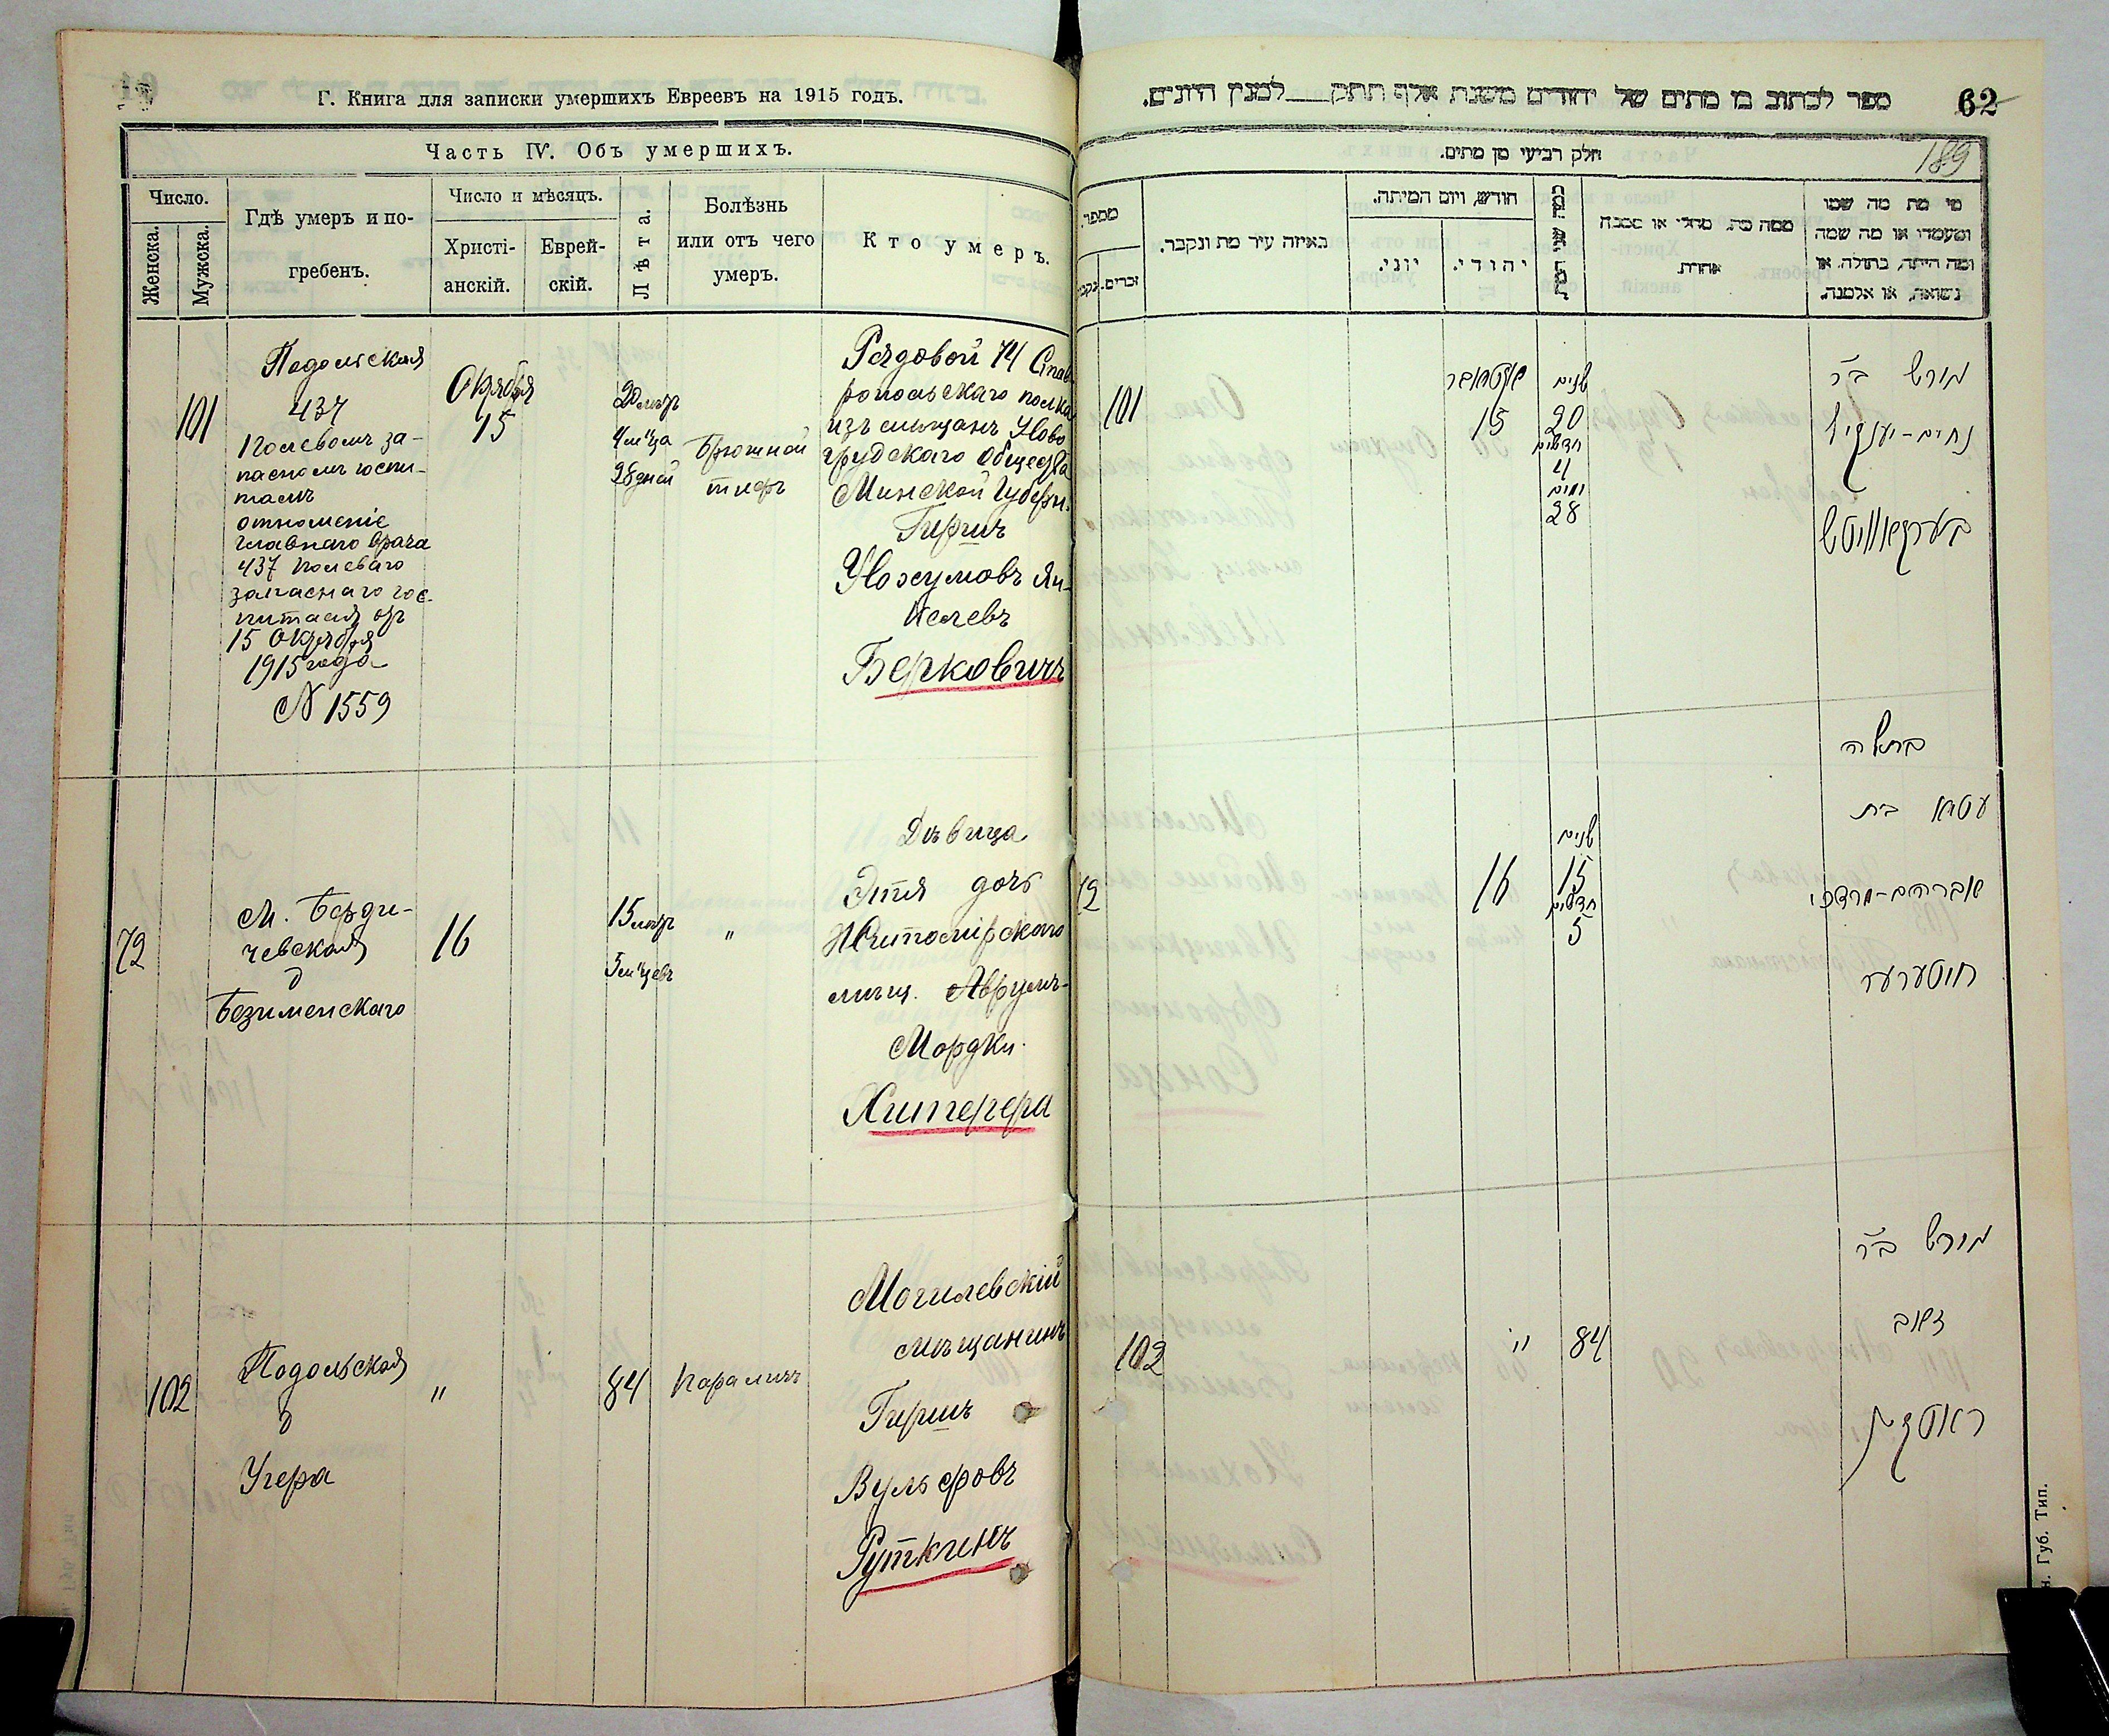 Г. Книга для записки умершихъ Евреевъ на 1915 годъ.
Часть IV. Объ умершихъ.
Число.
Женска.
Мужска.
Гдѣ умеръ и по-
гребенъ.
Число и мѣсяцъ.
Христі-
анскій.
Еврей-
скій.
Лѣта.
Болѣзнь
или отъ чего
умеръ.
Кто умеръ.
101
Подольская
437
Полевомъ за-
пасномъ госпи-
талѣ
отношеніе
главнаго врача
437 полеваго
запаснаго гос-
питаля отъ
15 Октября
1915 года
N 1559
Октября
15
20 лѣтъ
4 м-ца
28 дней
Брюшной
тифъ
Рядовой 74 Став-
ропольскаго полка
изъ мѣщанъ Ново
грудскаго общества
Минской Губерн.
Гиршъ
Нохумовъ Ян-
келевъ
Берковичъ
72
М. Берди-
чевская
д
Безименскаго
16
15 лѣтъ
5 м-цевъ
"
Дѣвица
Этля дочь
Житомірскаго
мѣщ. Аврумъ-
Мордки
Хитерера
102
Подольская
д
Угера
"
84
Параличъ
Могилевскій
мѣщанинъ
Гиршъ
Вульфовъ
Руткинъ
ספר לכתוב בו מתים של יהודים משנת אלף תתק למנין היונים.
62
189
חלק רביעי מן מתים.
מספר.
זכרים.
נקב
באיזה עיר מת ונקבר.
חודש, ויום המיתה.
יוני.
יהודי.
ממה מת. מחלי או מסבה
אחרת
מי מת מה שמו
ומעמדו או מה שמה
ומה היתה, בתולה, או
נשואה, או אלמנה.
101
אקטאבר
15
שנים
20
חדשים
4
ימים
28
הירש ב״ר
נחום-יענקיל
בערקאוויטש
72
16
שנים
15
חדשים
5
בתולה
עטיא בת
אברהם-מרדכי
חיטערער
102
"
84
הירש ב״ר
זאב
ראטקין
н. Губ. Тип.